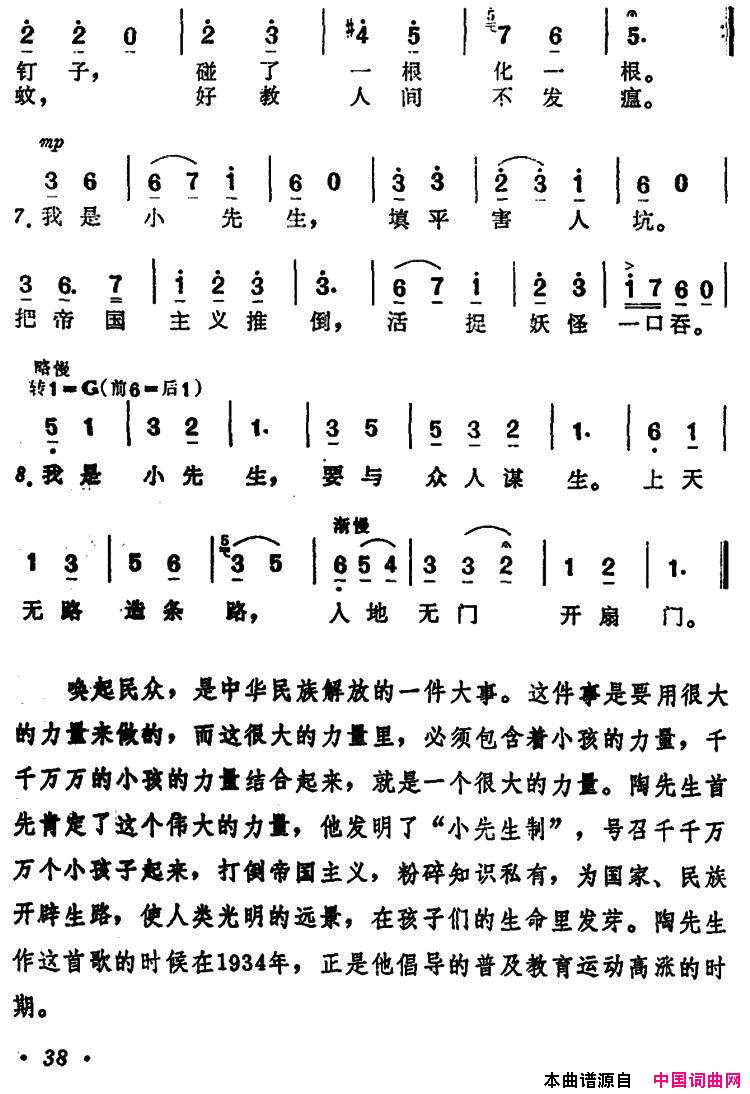 2 2 0 | 2 3 | #4 5 | 5 7 6 | 5. :||
钉子， 碰了 一根 化一根。
蚊， 好教 人间 不发 瘟。
mp
3 6 | 6 7 1 | 6 0 | 3 3 | 2 3 1 | 6 0 |
7.我是 小先 生， 填平 害人 坑。
3 6. 7 | 1 2 3 | 3. | 6 7 1 | 2 3 | 1 7 6 0 |
把帝国 主义推 倒， 活捉 妖怪 一口吞。
略慢
转1=G(前6=后1)
5 1 | 3 2 | 1. | 3 5 | 5 3 2 | 1. | 6 1 |
8.我是 小先 生， 要与 众人谋 生。 上天
渐慢
1 3 | 5 6 | 5 3 5 | 6 5 4 | 3 3 2 | 1 2 | 1. ||
无路 造条 路， 入地 无门 开扇 门。
唤起民众，是中华民族解放的一件大事。这件事是要用很大
的力量来做的，而这很大的力量里，必须包含着小孩的力量，千
千万万的小孩的力量结合起来，就是一个很大的力量。陶先生首
先肯定了这个伟大的力量，他发明了“小先生制”，号召千千万
万个小孩子起来，打倒帝国主义，粉碎知识私有，为国家、民族
开辟生路，使人类光明的远景，在孩子们的生命里发芽。陶先生
作这首歌的时候在1934年，正是他倡导的普及教育运动高涨的时
期。
· 38 ·
本曲谱源自 中国词曲网